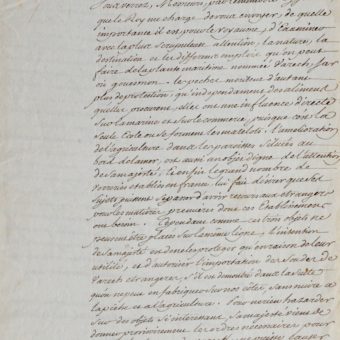 Vous verrez, Monsieur, par
que le Roy me charge de vous envoyer, de quelle
importance il est pour le royaume, d'Examiner
avec la plus scrupuleuse attention, la nature, la
destination et les differens emplois qu'on peut
faire de la plante maritime nommée Varech, sar
ou gouesmon. la peche merite d'autant
plus de protection, qu'independamment des alimens
qu'elle procure, elle a une influence directe
sur la marine et sur le commerce, puisque c'est la
seule Ecole ou se forment les matelots. l'amelioration
de l'agriculture dans les paroisses situées au
bord de la mer, est aussi un objet digne de l'attention
de sa majesté, et enfin le grand nombre de
verreries etablies en france, lui fait desirer que ses
sujets puissent se passer d'avoir recours aux etrangers
pour les matieres premieres dont ces Etablissemens
ont besoin. Cependant comme ces trois objets ne
peuvent être placés sur la même ligne, l'intention
de sa majesté est de ne les proteger qu'en raison de leur
utilité, et d'autoriser l'importation des Soudes de
Varech etrangeres, s'il est demontré dans la suite
qu'on ne peut en fabriquer sur nos côtes, sans nuire a
la pêche et a l'agriculture. Pour ne rien hazarder
sur des objets si interessans, sa majesté vient de
donner provisoirement les ordres necessaires pour